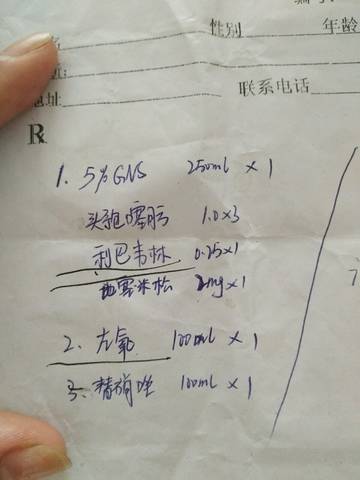 性别 年龄
地址 联系电话
R
1. 5%GNS 250ml × 1
头孢噻肟 1.0×3
利巴韦林 0.25×1
地塞米松 2mg×1
2. 左氧 100ml × 1
3. 替硝唑 100ml × 1